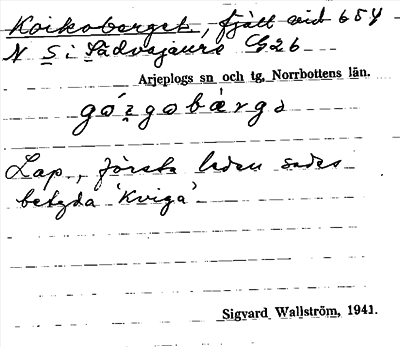 Koikoberget, fjäll vid 654
N S i Sädvajaure G26
Arjeplogs sn och tg, Norrbottens län.
Lap., första leden sades
betyda 'Kviga'
Sigvard Wallström, 1941.